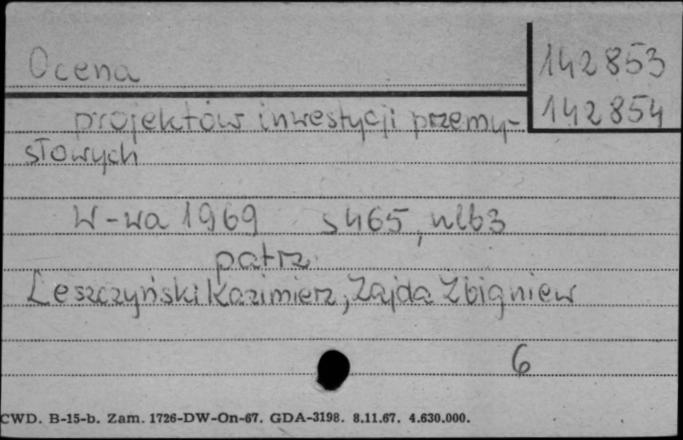 Ocena
142853
142854
projektów inwestycji przemy-
słowych
W-wa 1969 s465, nlb3
patrz
Leszczyński Kazimierz, Zajda Zbigniew
6
CWD. B-15-b. Zam. 1726-DW-On-67. GDA-3198. 8.11.67. 4.630.000.